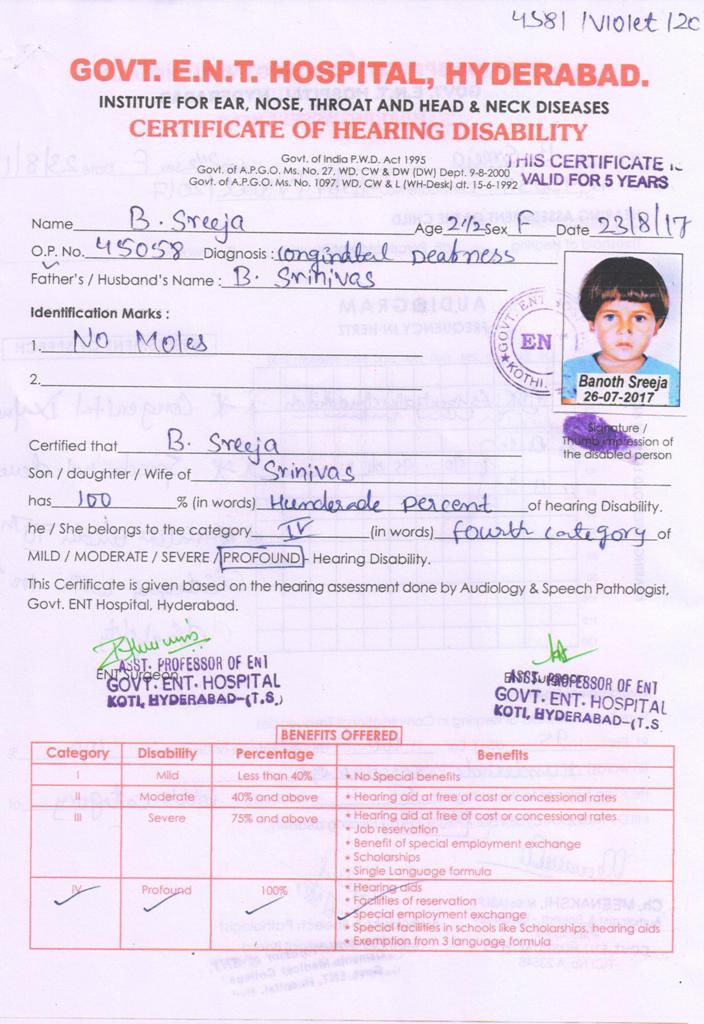 4581 / Violet / 2c
GOVT. E.N.T. HOSPITAL, HYDERABAD.
INSTITUTE FOR EAR, NOSE, THROAT AND HEAD & NECK DISEASES
CERTIFICATE OF HEARING DISABILITY
Govt. of India P.W.D. Act 1995
Govt. of A.P.G.O. Ms. No. 27, WD, CW & DW (DW) Dept. 9-8-2000
Govt. of A.P.G.O. Ms. No. 1097, WD, CW & L (WH-Desk) dt. 15-6-1992
THIS CERTIFICATE
VALID FOR 5 YEARS
Name B. Sreeja Age 2 1/2 Sex F Date 23/8/17
O.P. No. 45058 Diagnosis : Conginatal Deafness
Father's / Husband's Name : B. Srinivas
Identification Marks :
1. No Moles
2.
GOVT. ENT
EN
KOTHI.
Banoth Sreeja
26-07-2017
Signature /
Thumb impression of
the disabled person
Certified that B. Sreeja
Son / daughter / Wife of Srinivas
has 100 % (in words) Hunderade percent of hearing Disability.
he / She belongs to the category IV (in words) fourth category of
MILD / MODERATE / SEVERE / PROFOUND - Hearing Disability.
This Certificate is given based on the hearing assessment done by Audiology & Speech Pathologist,
Govt. ENT Hospital, Hyderabad.
ENT Surgeon
ASST. PROFESSOR OF ENT
GOVT. ENT. HOSPITAL
KOTI, HYDERABAD-(T.S.)
ENT Surgeon
ASST. PROFESSOR OF ENT
GOVT. ENT. HOSPITAL
KOTI, HYDERABAD-(T.S
BENEFITS OFFERED
Category Disability Percentage Benefits
I Mild Less than 40% * No Special benefits
II Moderate 40% and above * Hearing aid at free of cost or concessional rates
III Severe 75% and above * Hearing aid at free of cost or concessional rates
* Job reservation
* Benefit of special employment exchange
* Scholarships
* Single Language formula
IV Profound 100% * Hearing aids
* Facilities of reservation
* Special employment exchange
* Special facilities in schools like Scholarships, hearing aids
* Exemption from 3 language formula